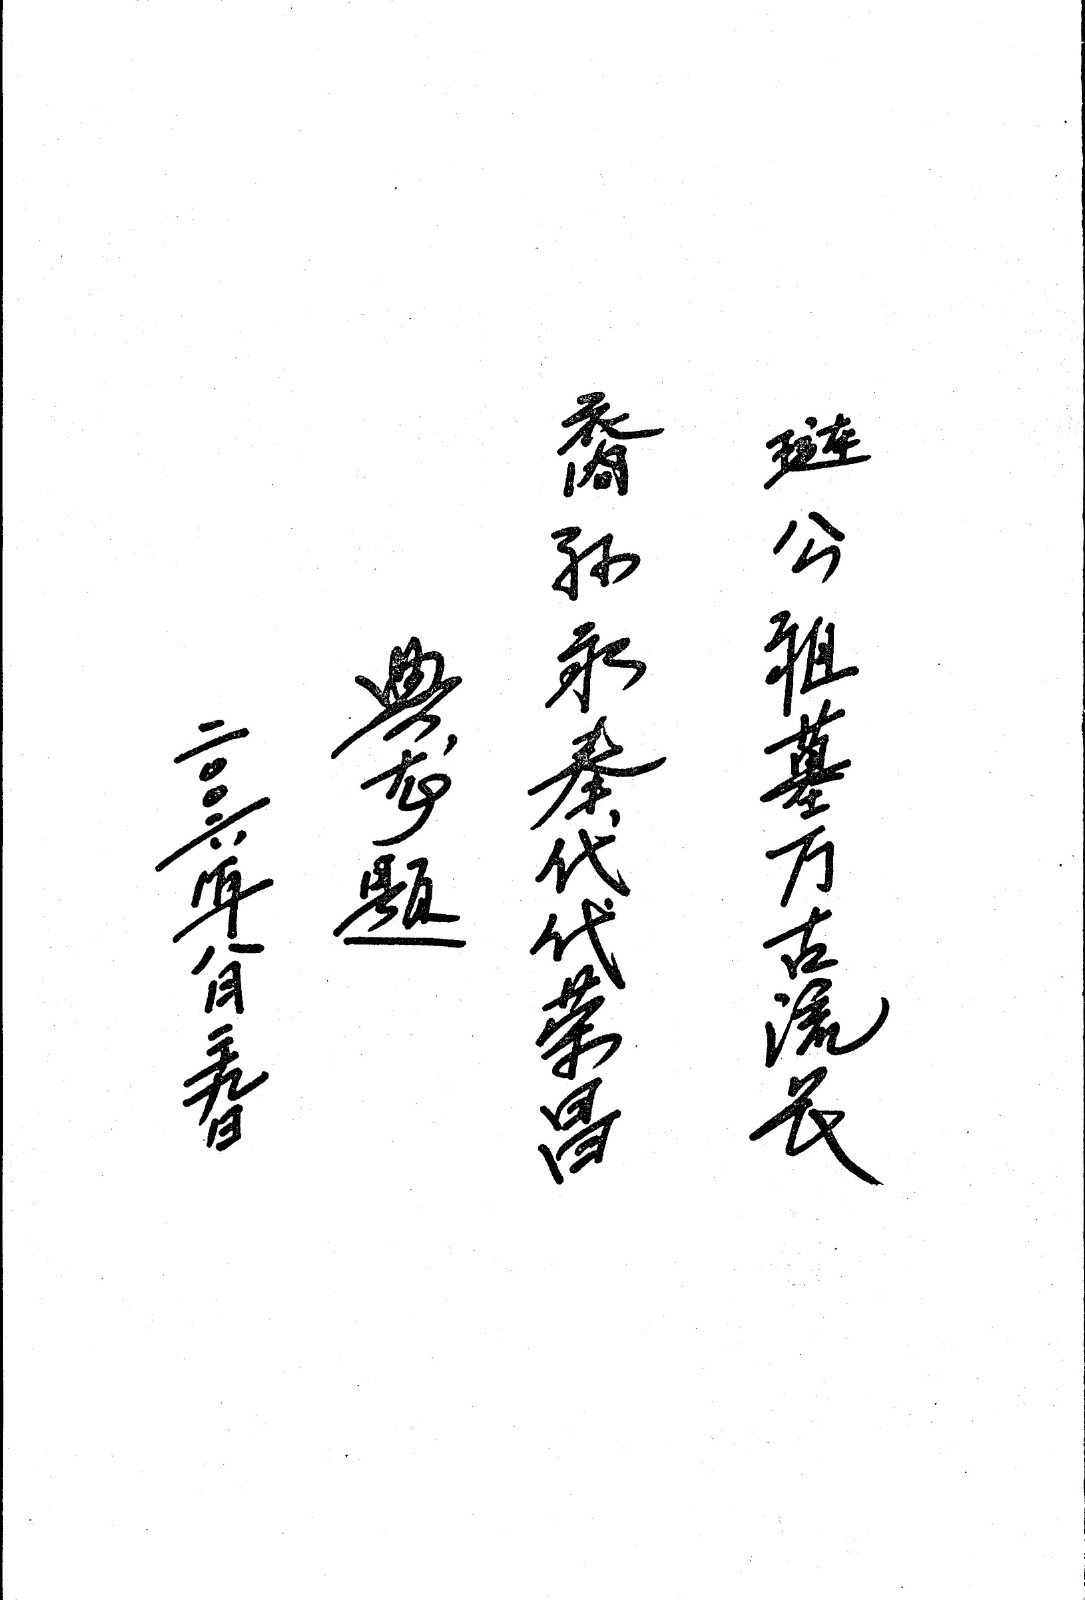 琏公祖墓万古流长
裔孙永泰代代荣昌
典龙题
二〇〇六年八月二十九日